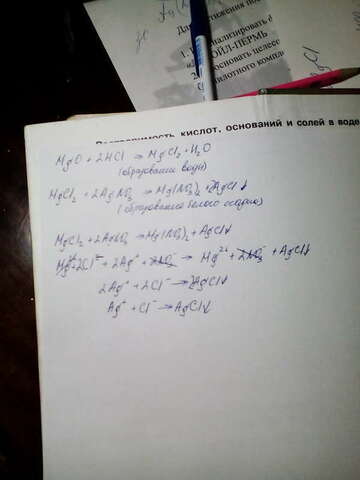 Для
1.
ОЙЛ-ПЕРМЬ
основать целесо
пилотного компл
AgCl
Растворимость кислот, оснований и солей в воде
MgO + 2HCl → MgCl₂ + H₂O
(образование воды)
MgCl₂ + 2AgNO₃ → Mg(NO₃)₂ + 2AgCl↓
(образование белого осадка)
MgCl₂ + 2AgNO₃ → Mg(NO₃)₂ + AgCl↓
Mg²⁺ + 2Cl⁻ + 2Ag⁺ + 2NO₃⁻ → Mg²⁺ + 2NO₃⁻ + AgCl↓
2Ag⁺ + 2Cl⁻ → 2AgCl↓
Ag⁺ + Cl⁻ → AgCl↓